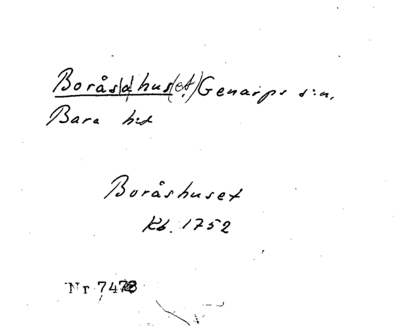 Borås|a|hus(et) Genarps s:n,
Bara h:d
Boråshuset
Kb. 1752
Nr 7478